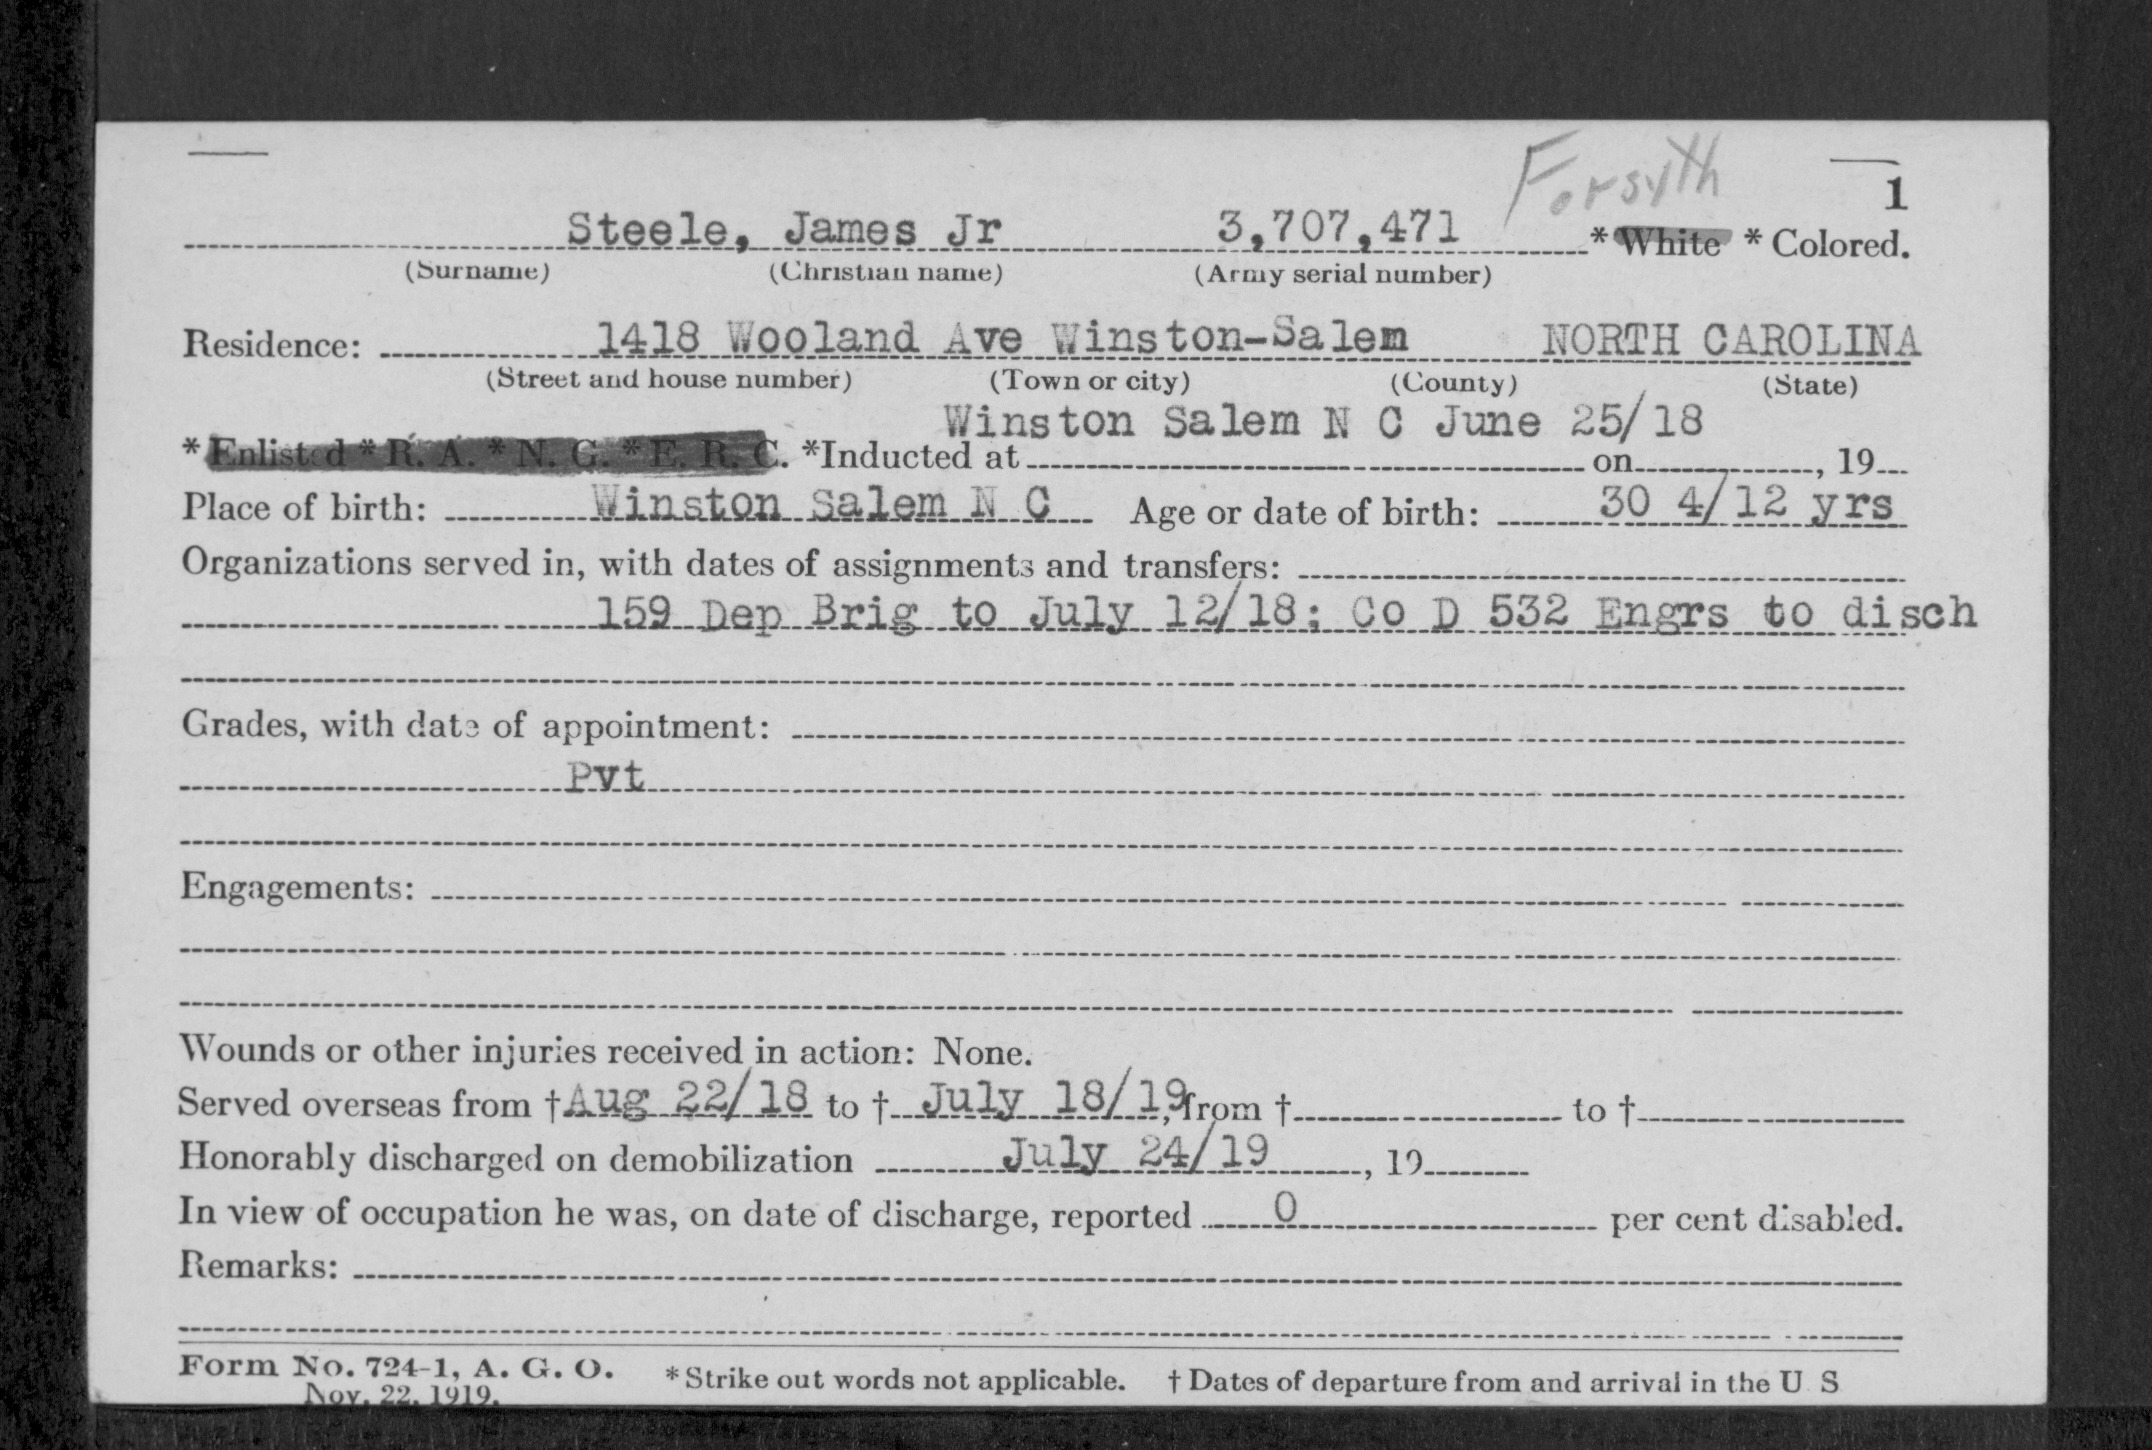 Forsyth
1
Steele, James Jr 3,707,471 * White * Colored.
(Surname) (Christian name) (Army serial number)
Residence: 1418 Wooland Ave Winston-Salem NORTH CAROLINA
(Street and house number) (Town or city) (County) (State)
Winston Salem N C June 25/18
* Enlisted * R. A. * N. G. * E. R. C. *Inducted at on , 19
Place of birth: Winston Salem N C Age or date of birth: 30 4/12 yrs
Organizations served in, with dates of assignments and transfers:
159 Dep Brig to July 12/18; Co D 532 Engrs to disch
Grades, with date of appointment:
Pvt
Engagements:
Wounds or other injuries received in action: None.
Served overseas from † Aug 22/18 to † July 18/19, from † to †
Honorably discharged on demobilization July 24/19 , 19
In view of occupation he was, on date of discharge, reported 0 per cent disabled.
Remarks:
Form No. 724-1, A. G. O. * Strike out words not applicable. † Dates of departure from and arrival in the U S
Nov. 22, 1919.